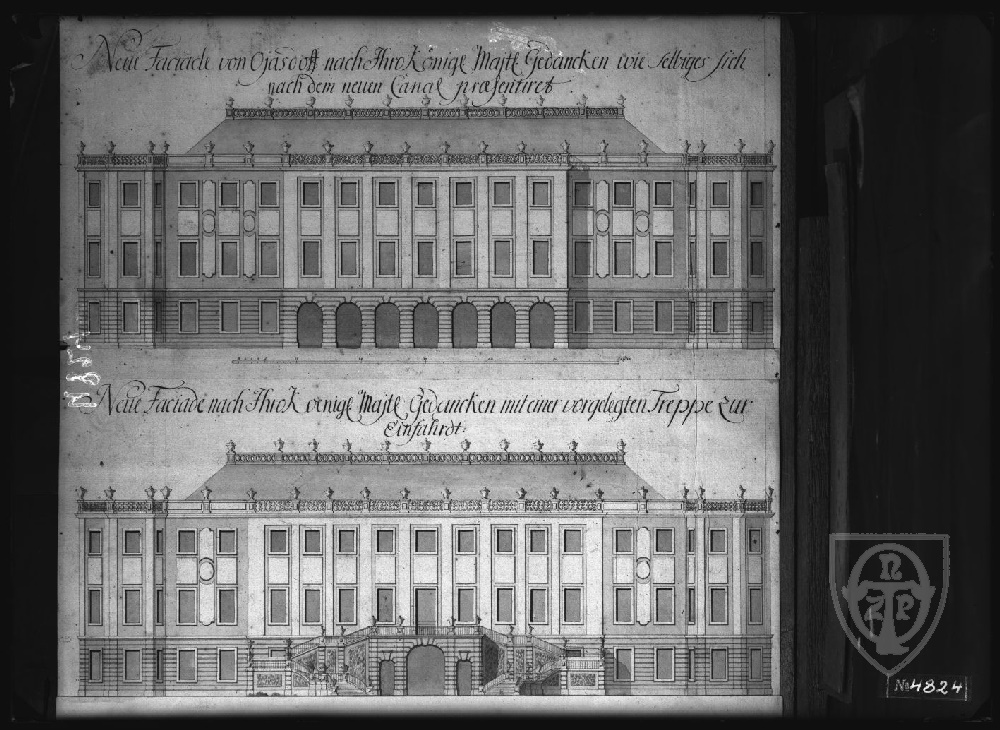 Neue Faciade von Ojasdoff nach Ihro Königl Majtt Gedancken wie selbiges sich
nach dem neuen Canal præsentiret
Neue Faciade nach Ihro Königl Majtt Gedancken mit einer vorgelegten Treppe zur
Einfahrdt.
nZPR
No 4824